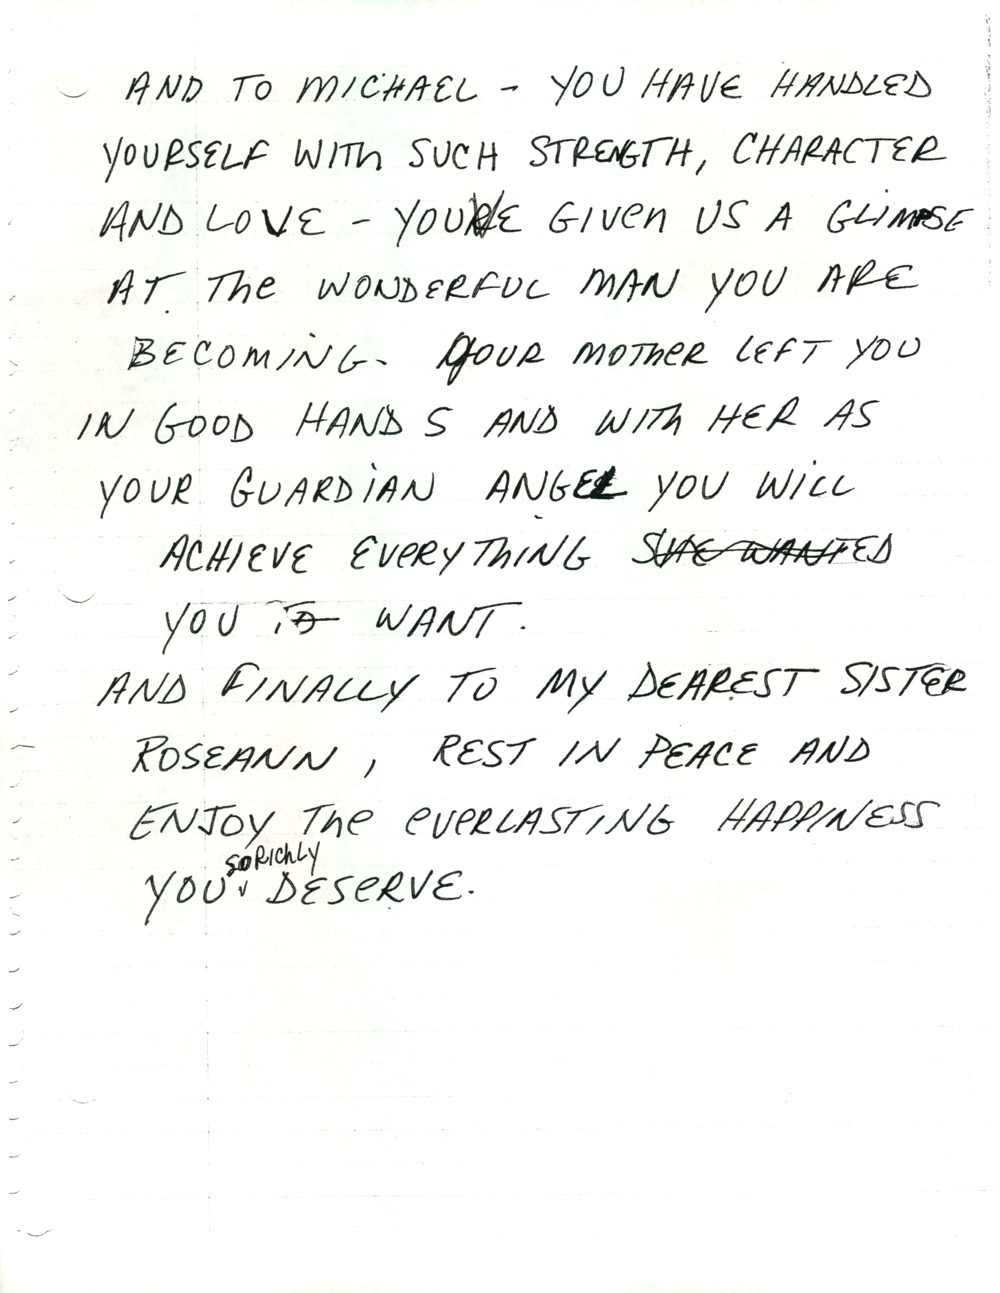 AND TO MICHAEL - YOU HAVE HANDLED
YOURSELF WITH SUCH STRENGTH, CHARACTER
AND LOVE - YOU'VE GIVEN US A GLIMPSE
AT THE WONDERFUL MAN YOU ARE
BECOMING. YOUR MOTHER LEFT YOU
IN GOOD HANDS AND WITH HER AS
YOUR GUARDIAN ANGEL YOU WILL
ACHIEVE EVERYTHING SHE WANTED
YOU TO WANT.
AND FINALLY TO MY DEAREST SISTER
ROSEANN, REST IN PEACE AND
ENJOY THE EVERLASTING HAPPINESS
SO RICHLY
YOU DESERVE.